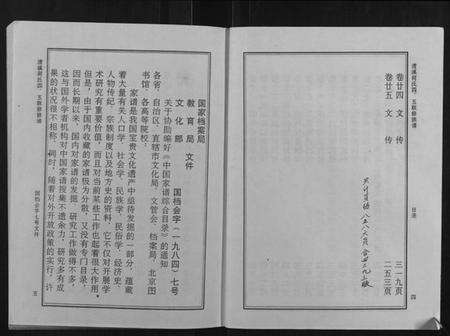 卷廿四 文 传 三一九页
卷廿五 文 传 二五三页
目录
四
国家档案局
教育局 文件
文化部
国档会字(一九八四)七号
关于协助编好《中国家谱综合目录》的通知
各省、自治区、直辖市文化局、文管会、档案局,北京图
书馆,各高等院校:
家谱是我国宝贵文化遗产中组待发掘的一部分,蕴藏
着大量有关人口学、社会学、民族学、民俗学、经济史、
人物传纪、宗族制度以及地方史的资料,它不仅对开展学
术研究有重要价值,而且对当前某些工作也起着很大作用。
但是,由于国内收藏的家谱极为分散,又没有专门目录,
因而长期以来,国内对家谱的发掘、研究工作做得不多,
这与国外学者机构对中国家谱搜集不遗余力,研究多有成
果的状况很不相称。同时,随着对外开放政策的实行,许
国档会字七号文件
五